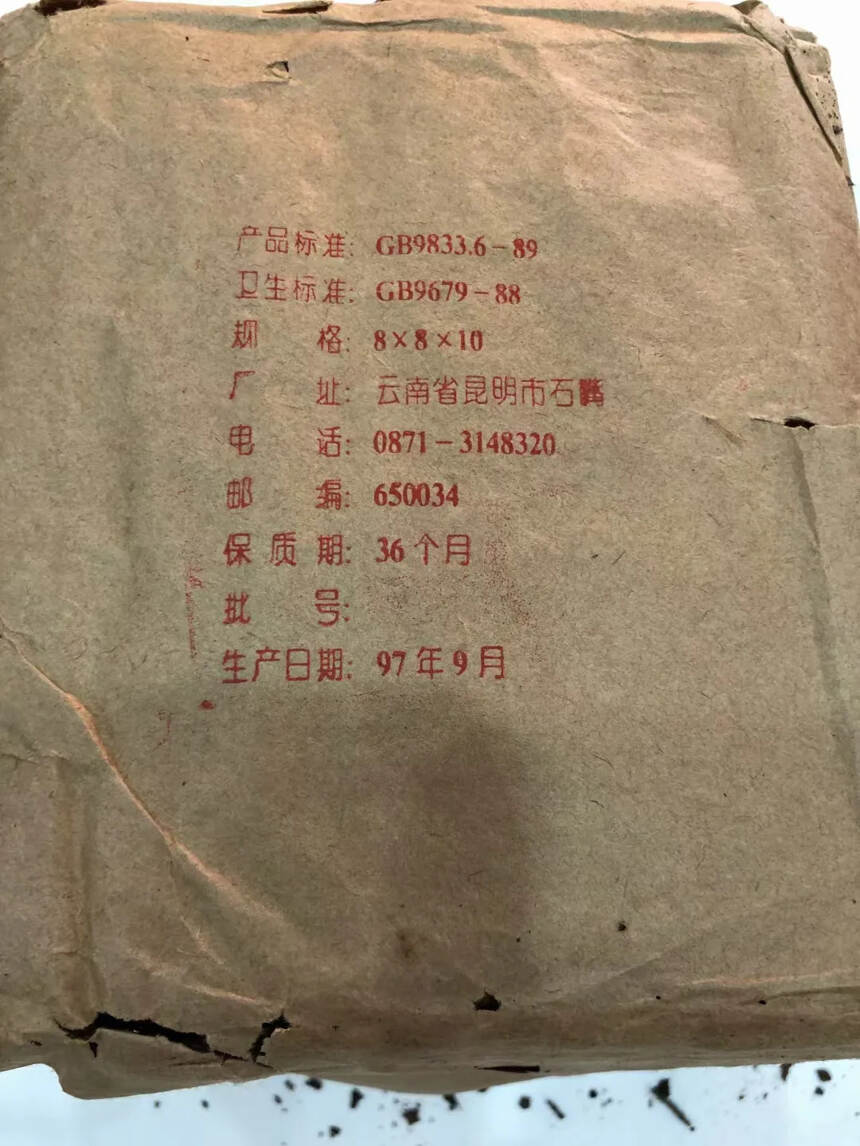 产品标准: GB9833.6-89
卫生标准: GB9679-88
规 格: 8×8×10
厂 址: 云南省昆明市石嘴
电 话: 0871-3148320
邮 编: 650034
保质期: 36个月
批 号:
生产日期: 97年9月